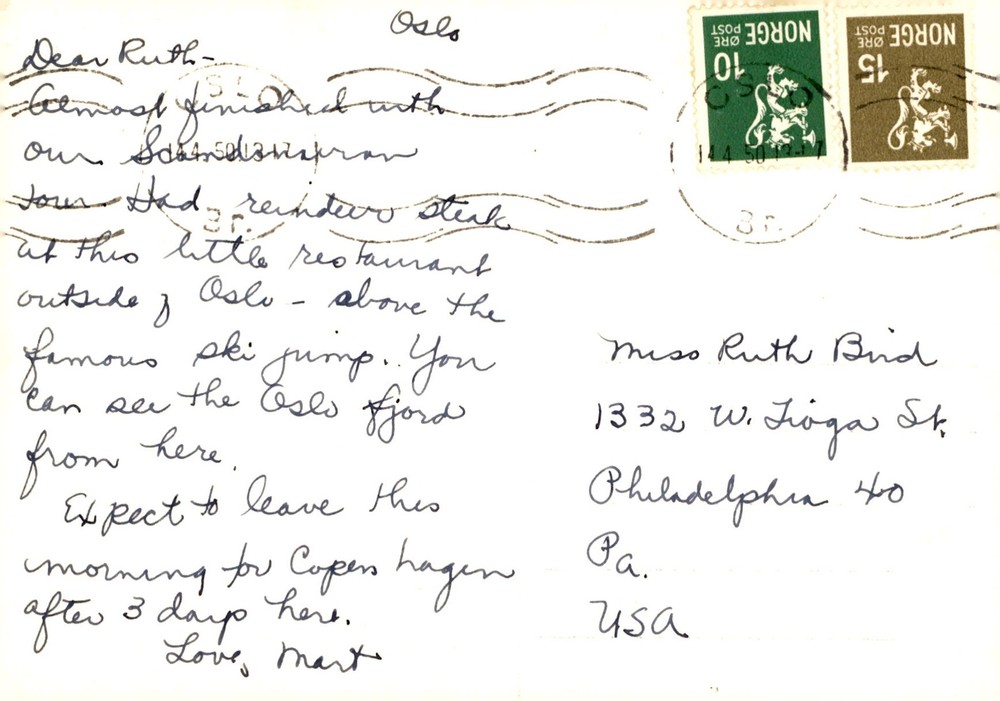 Oslo
Dear Ruth-
Almost finished with
our Scandanavian
tour. Had reindeer steak
at this little restaurant
outside of Oslo - above the
famous ski jump. You
can see the Oslo fjord
from here.
Expect to leave this
morning for Copenhagen
after 3 days here.
Love, Mart
NORGE
ØRE
POST
10
NORGE
ØRE
POST
15
OSLO
14 4 50 13-17
Br.
OSLO
14 4 50 13-17
Br.
Miss Ruth Bird
1332 W. Tioga St.
Philadelphia 40
Pa.
USA